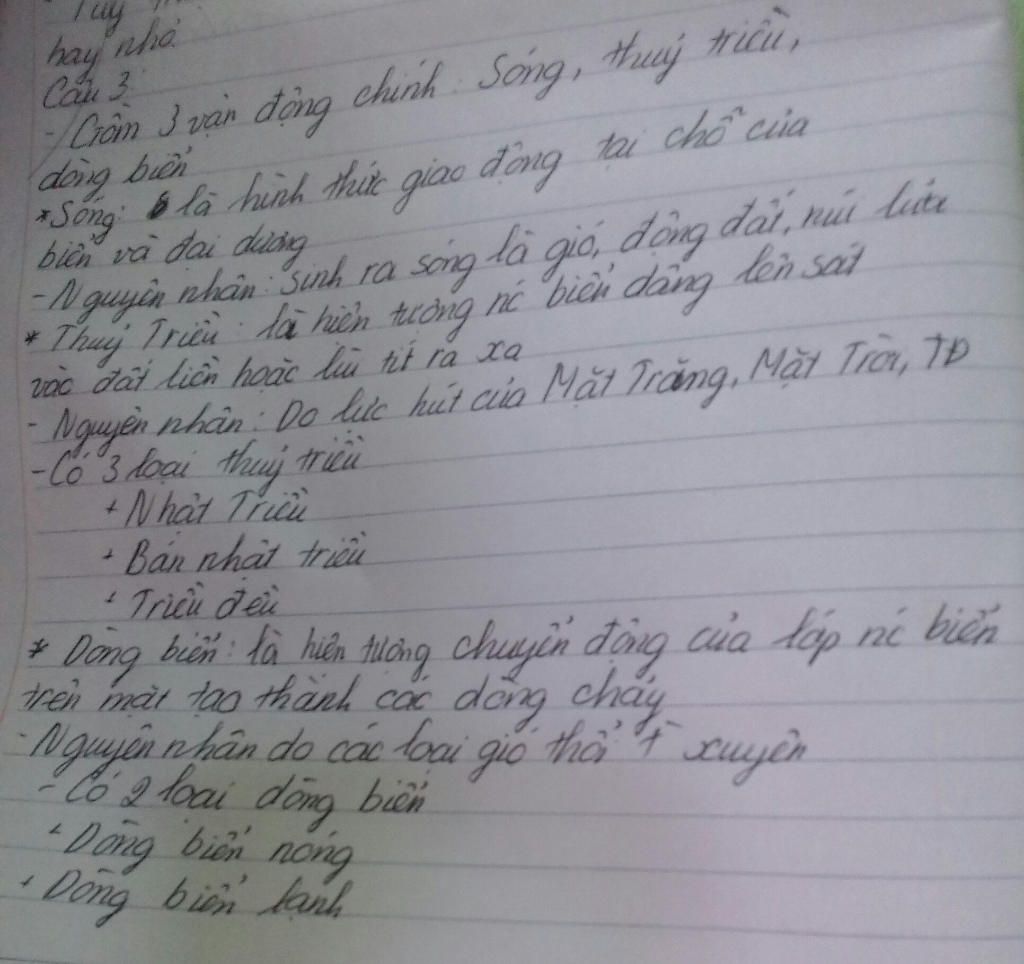 hay nhỏ.
Câu 3:
- Gồm 3 vận động chính: Sóng, thuỷ triều,
dòng biển
* Sóng: là hình thức giao động tại chỗ của
biển và đại dương
- Nguyên nhân: Sinh ra sóng là gió, động đất, núi lửa
* Thuỷ Triều: là hiện tượng nc biển dâng lên sát
vào đất liền hoặc lùi tít ra xa
- Nguyên nhân: Do lực hút của Mặt Trăng, Mặt Trời, TĐ
- Có 3 loại thuỷ triều
+ Nhật Triều
+ Bán nhật triều
+ Triều đều
* Dòng biển: là hiện tượng chuyển động của lớp nc biển
trên mặt tạo thành các dòng chảy
- Nguyên nhân do các loại gió thổi T xuyên
- Có 2 loại dòng biển
+ Dòng biển nóng
+ Dòng biển lạnh